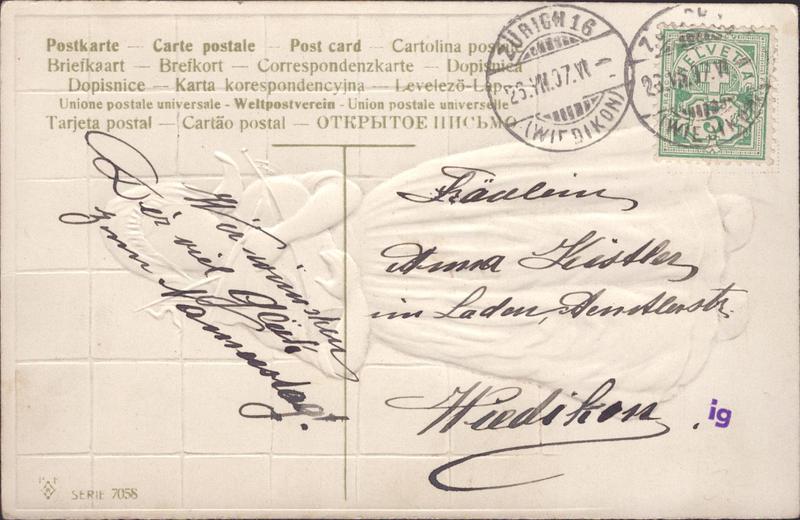 Postkarte — Carte postale — Post card — Cartolina postale
Briefkaart — Brefkort — Correspondenzkarte — Dopisnica
Dopisnice — Karta korespondencyjna — Levelező-Lap
Unione postale universale - Weltpostverein - Union postale universelle
Tarjeta postal — Cartão postal — ОТКРЫТОЕ ПИСЬМО
ZÜRICH 16
(WIEDIKON)
HELVETIA
5
(WIEDIKON)
Wir wünschen
Dir viel Glück
zum Namenstag!
Fräulein
Anna Kistler
im Laden,
Wiedikon.
ig
SERIE 7058